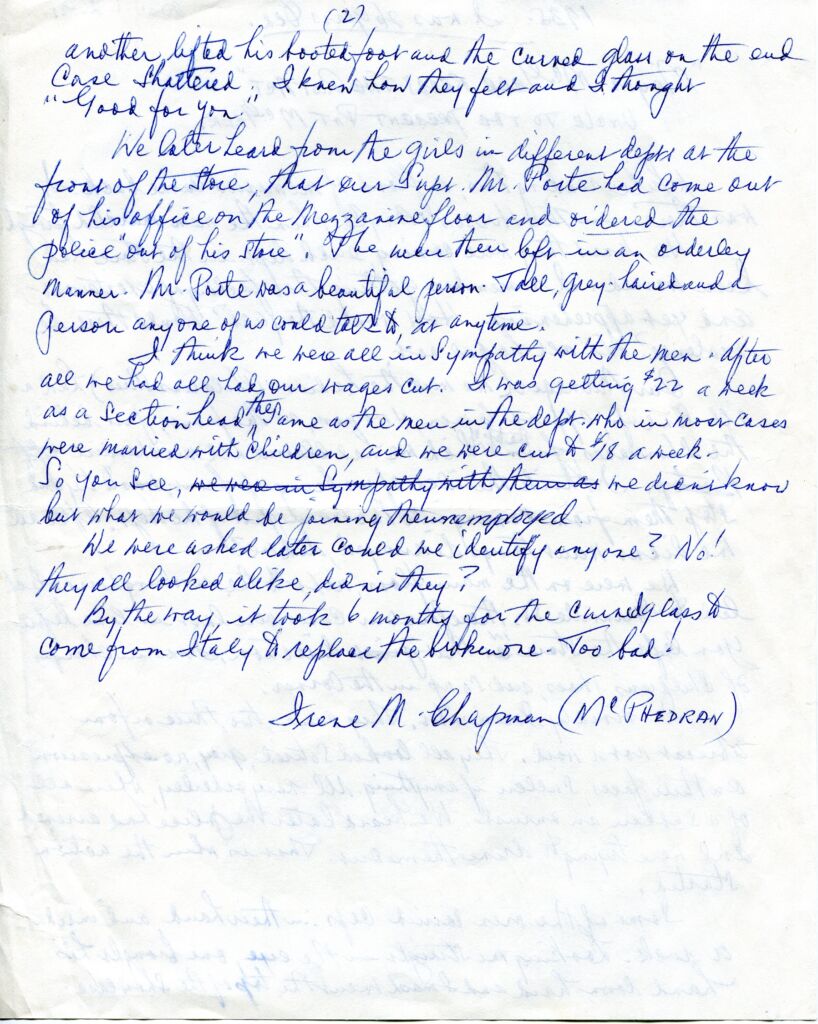 (2)
another, lifted his booted foot and the curved glass on the end
Case Shattered. I knew how they felt and I thought
"Good for you."
We later heard from the girls in different depts at the
front of the Store, that our Supt. Mr. Porte had come out
of his office on the Mezzanine floor and ordered the
police "out of his store". The men then left in an orderley
manner. Mr. Porte was a beautiful person. Tall, grey-haired and a
person anyone of us could talk to, at anytime.
I think we were all in Sympathy with the men. After
all we had all had our wages cut. I was getting $22 a week
as a Section head, the same as the men in the dept. who in most cases
were married with Children, and we were cut to $18 a week.
So you see, we were in Sympathy with them as we didn't know
but what we would be joining the unemployed
We were asked later could we identify anyone? No!
they all looked alike, didn't they?
By the way, it took 6 months for the curved glass to
come from Italy to replace the broken one. Too bad.
Irene M. Chapman (McPHEDRAN)